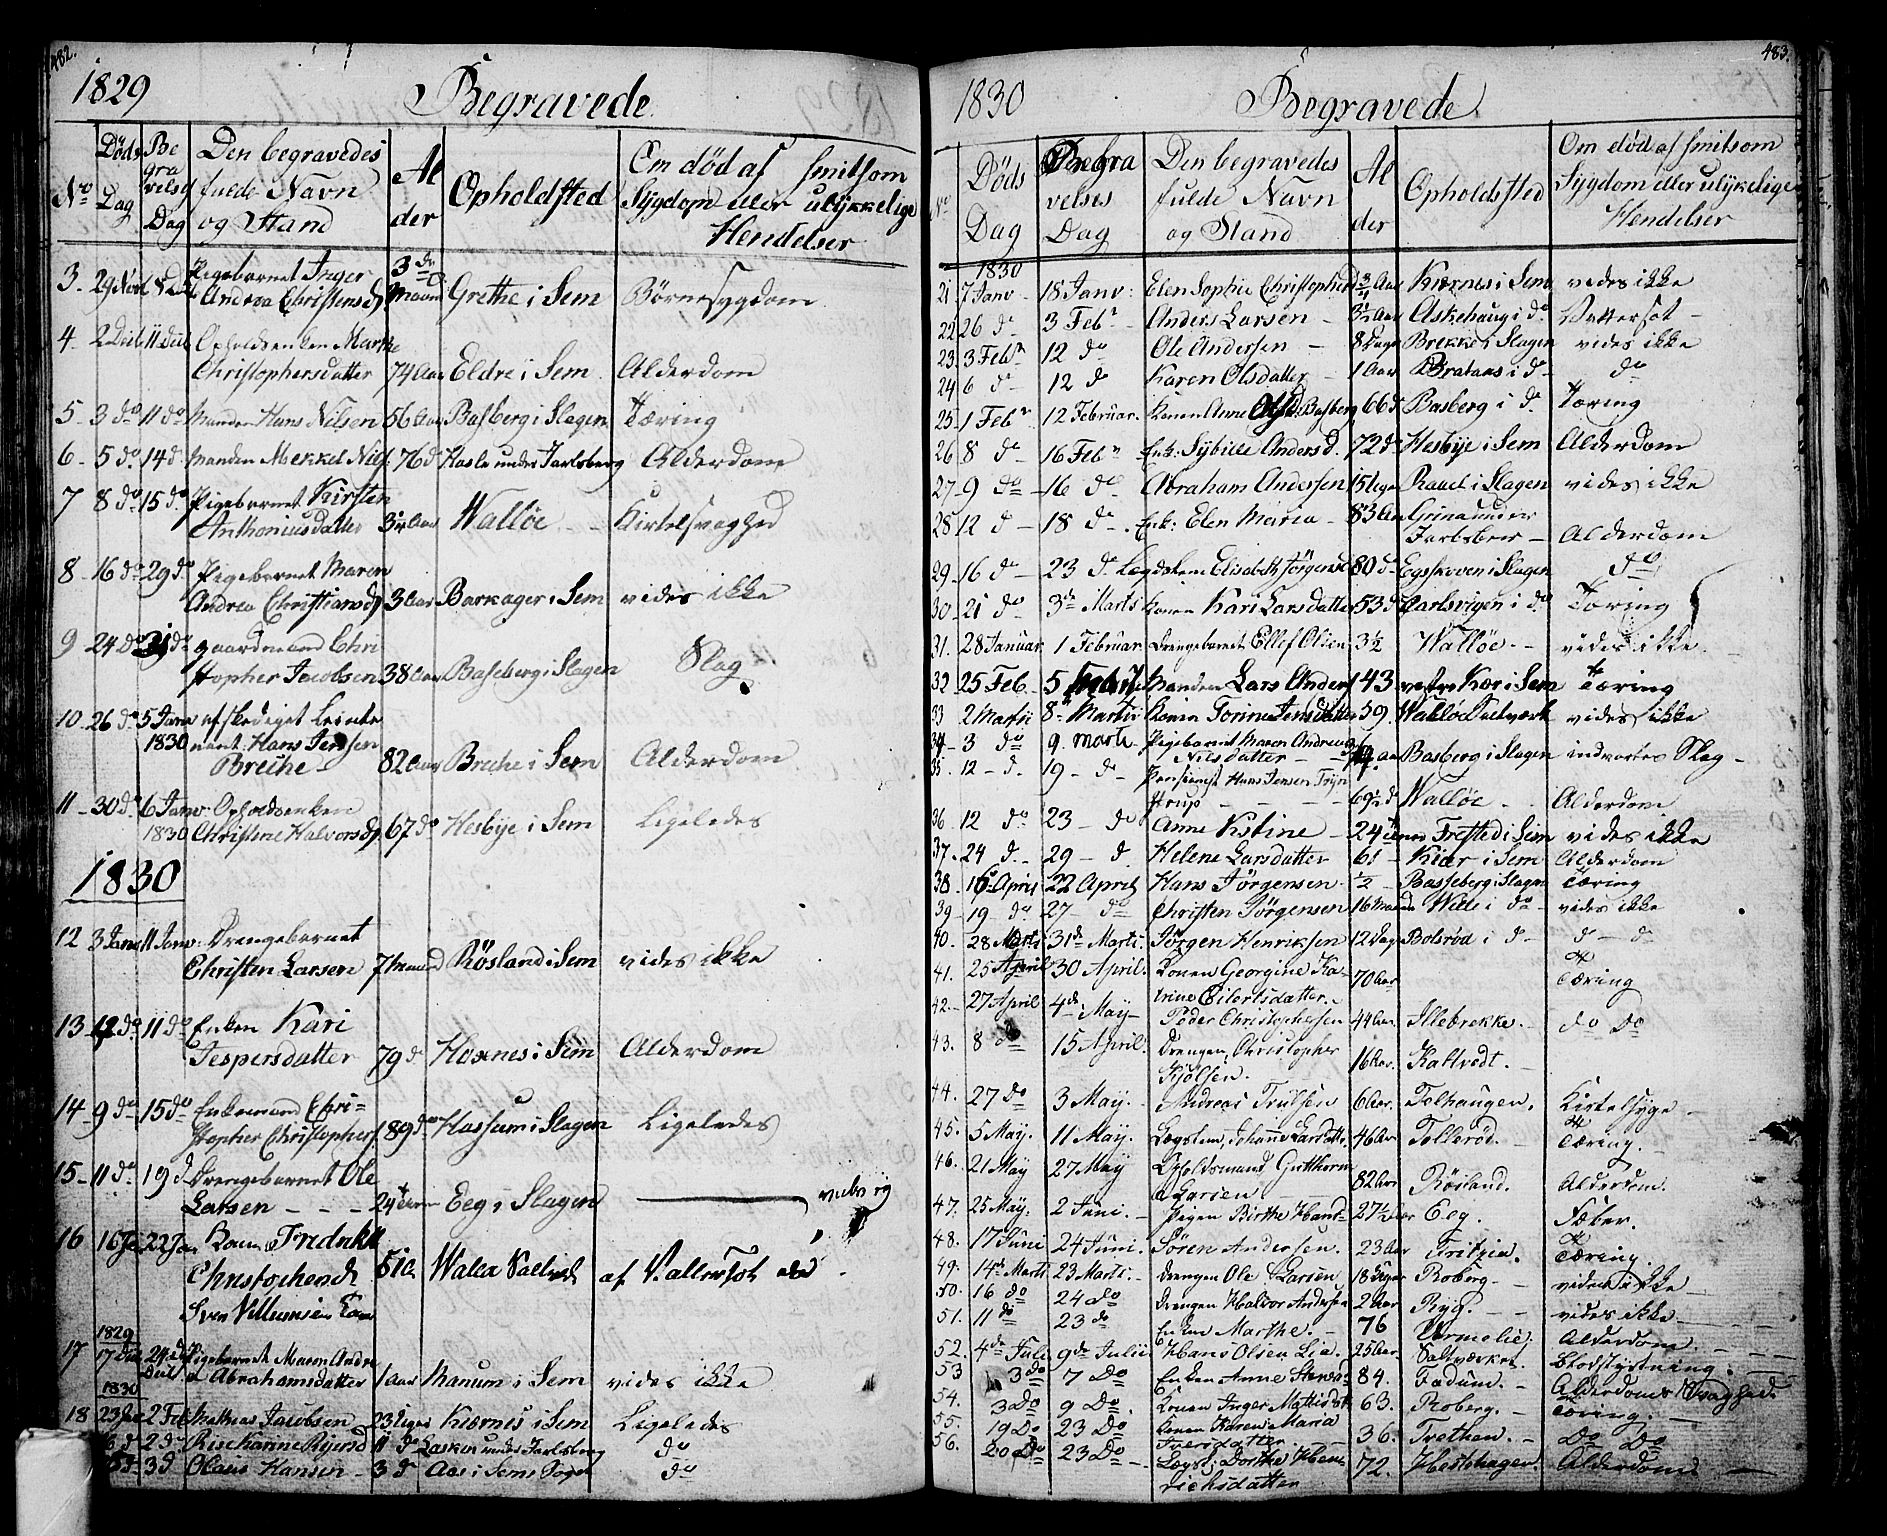 482.
1829 Begravede.
No Døds Dag Be gra velses Dag Den begravedes fulde Navn og Stand Al der Opholdsted Om død af smitsom Sygdom eller ulykkelige Hendelser
3. 29 Nov Pigebarnet Inger
Andrea Christensd 3 do Maan Grethe i Sem Børnesygdom.
4 2 Decb 11 Decb Opholdsenken Marthe
Christophersdatter 74 Aar Eldre i Sem Alderdom
5 3 do 11 do Manden Hans Nilsen 56 Aar Basberg i Slagen Tæring
6 5 do 14 d. Manden Mekkel Nils 76 d Kasle under Jarlsberg Alderdom
7 8 do 15 do Pigebarnet Kirsten
Anthoniusdatter Aar Walløe Kirtelsvaghed
8 16 do 29 do Pigebarnet Maren
Andrea Christiansd 3 Aar Barkager i Sem vides ikke
9 24 do 31 do gaardmand Chri
stopher Jacobsen 38 Aar Baseberg i Slagen Slag
10 26 do 5 Janv afskediget Leinte
1830 nant Hans Jensen
Breche 82 Aar Breche i Sem Alderdom
11 30 do 6 Janv. Opholdsenken
1830 Christene Halvorsd 67 do Hesbye i Sem Ligeledes
1830
12 3 Janv 11 Janv. Drengebarnet
Christen Larsen 7 Maaned Røsland i Sem vides ikke
13 12 do 11 do Enken Kari
Jespersdatter 79 d Haxnes i Sem Alderdom
14 9 do 15 do Enkemand Chri-
stopher Christophers 89 do Hassum i Slagen Ligeledes
15 11 do 19 d Drengebarnet Ole
Larsen - - - 24 Eeg i Slagen
16 16 Ja 22 Jan Kone Fredrikke
Sven Villumsen Kone 51 a Walløe af Vattersot død
1829
17 17 Dec 24 de Decb Pigebarnet Maren Andre
a Abrahamsdatter 1 Aar Manum i Sem vides ikke
1830
18 23 Jan 2 Feb Mathias Jacobsen 23 Dages Kiærnes i Sem Ligeledes
2 do Rise Karine Riersd 11 do Lasken under Jarlsberg do
3 d Olaus Hansen 3 d Aas i Sems Sogn do
483.
1830 Begravede.
No Døds Dag Begra velses Dag Den begravedes fulde Navn og Stand Al der Opholdsted Om død af smitsom Sygdom eller ulykkelige Hendelser
1830
21 7 Janv 18 Janv: Elen Sophie Christophersd 3/4 Aar Kiærnes i Sem vides ikke
22 26 do 3 Febr Anders Larsen 3 1/2 Aar Askehaug i do Vattersot
23. 3 Febr 12 do Ole Andersen 8 Dage Brekke i Slagen vides ikke
24 6 do 12 d Karen Olsdatter 1 Aar Brataas i d do
25. 1 Febr 12 Februar. Konen Anne Olsd. Basberg 66 d Basberg i do Tæring
26 8 do 16 Febr Enk. Sybille Andersd. 72 d Hesbye i Sem Alderdom
27 9 do 16 do Abraham Andersen 15 Uger Rauel i Slagen vides ikke
28 12 d 18 do Enk: Elen Maria 83 Aar Grina under
Jarlsberg Alderdom
29 16 do 23 do Lægdslem Elisabeth Jørgensd 80 d Egskoven i Slagen do
30. 21 do 3 de Marts Konen Kari Larsdatter 53 d Carlsvigen i do Tæring
31. 28 Januar 1 Februar Drengebarnet Ellef Olsen 3 1/2 Walløe vides ikke
32 25 Feb. 5 Manden Lars Anders 43 vestre Kiær i Sem Tæring
33 2 Marts 8 Marts Konen Torine Jensdatter 59 Walløe Saltværk vides ikke
34 3 do 9. marts Pigebarnet Maren Andrea
Nilsdatter Aar Basberg i Slagen indvortes Slag
35. 12 d. 19 d Pensionist Hans Jensen Tryn
strup 69 1/2 d Walløe Alderdom
36. 12 do 23 do Anne Kstine 24 Frested i Sem vides ikke
37. 24 d. 29 d. Helene Larsdatter 61 Kiær i Sem Alderdom
38. 16 April 22 April Hans Jørgensen 1/2 Basseberg i Slagen Tæring
39 19 do 27 do Christen Jørgensen 16 Maaned Wille i do vides ikke
40. 28 Marts 31 de Marts. Jørgen Henriksen 12 Dag Bolsrød i d d d
41. 25 April 30 April. Konen Georgine Ka-
trine Eilertsdatter. 70 Aar Tæring
42. 27 April 4 de May Peder Christophersen 44 Aar. Illebrekke. do Do
43. 8 do 15 April. Drengen, Christopher
Kjølsen. 16 Aar. Kaltvedt.
44. 27 Do 3 May. Andreas Trulsen 6 Aar. Tolhaugen. Kirtelsyge
45. 5 May. 11 May. Lægslem, Johanne Larsdatte. 46 Aar Tollerød. Tæring.
46. 21 May 27 May Opholdsmand, Gutthorm
Larsen 82 Aar Røsland. Alderdom.
47. 25 May. 2 Juni. Pigen Birthe Hans- 27 1/2 Aar Eeg. Feber.
48. 17 Juni 24 Juni. Søren Andersen. 23 Aar Fritzia. Tæring.
49. 14 de Marts 23 Marts. Drengen Ole Larsen 18 Uger Roberg. vides ikke
50. 16 do 24 do Drengen Halvor Andersen 2 Aar Ryg. vides ikke
51. 11 do 23 do Enken Marthe. 76 Ormelie Alderdom.
52. 4 de Juli 9 de Julii Hans Olsen Lia. 25 Aar. Saltværket. Blodstyrtning.
53 3 do 7 Do Enken Anne 84. Fadum. Alderdoms Svaghed.
54. 3 Do 9 Do. Konen Inger Mathisdt. 63. Roberg. Tæring.
55. 19 Do 23 Do Konen Karen Maria
Iversdatter 36. Trethan. Do Do
56. 20 Do 23 Do Lægsl: Dorthe Hen-
richsdatter 72. Hestehagen. Alderdom